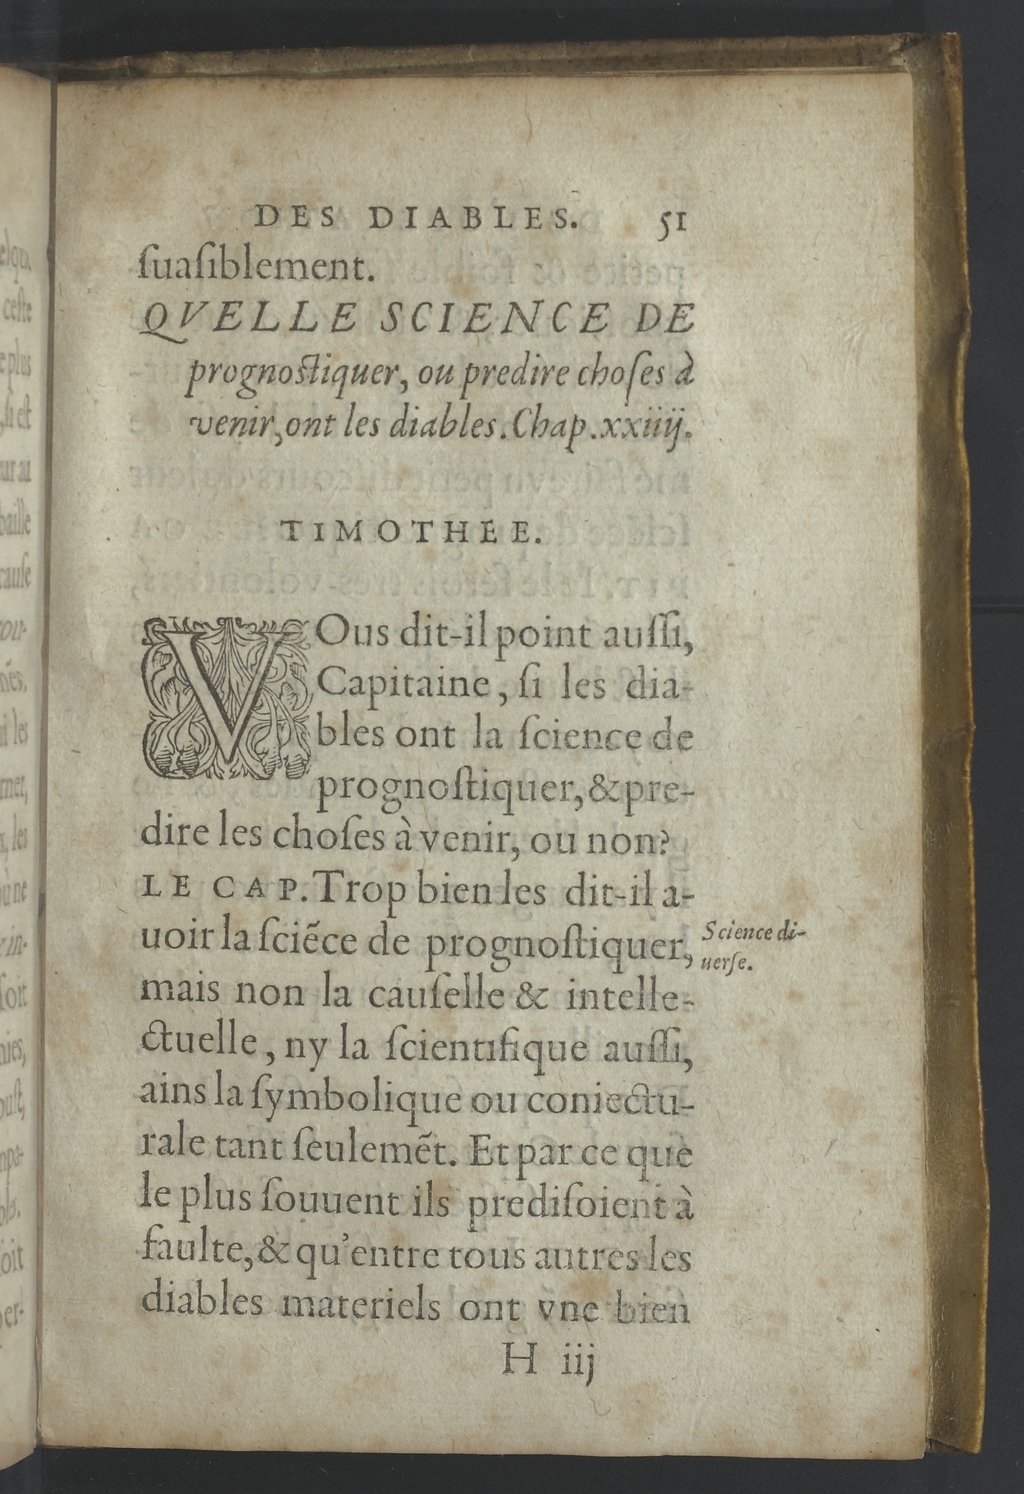 DES DIABLES. 51
ſuaſiblement.
QVELLE SCIENCE DE
prognoſtiquer, ou predire choſes à
venir, ont les diables. Chap. xxiiij.
TIMOTHEE.
VOus dit-il point auſſi,
Capitaine, ſi les dia-
bles ont la ſcience de
prognoſtiquer, & pre-
dire les choſes à venir, ou non?
LE CAP. Trop bien les dit-il a-
uoir la ſciẽce de prognoſtiquer,
Science di-
uerſe.
mais non la cauſelle & intelle-
ctuelle, ny la ſcientifique auſſi,
ains la ſymbolique ou coniectu-
rale tant ſeulemẽt. Et par ce que
le plus ſouuent ils prediſoient à
faulte, & qu'entre tous autres les
diables materiels ont vne bien
H iij